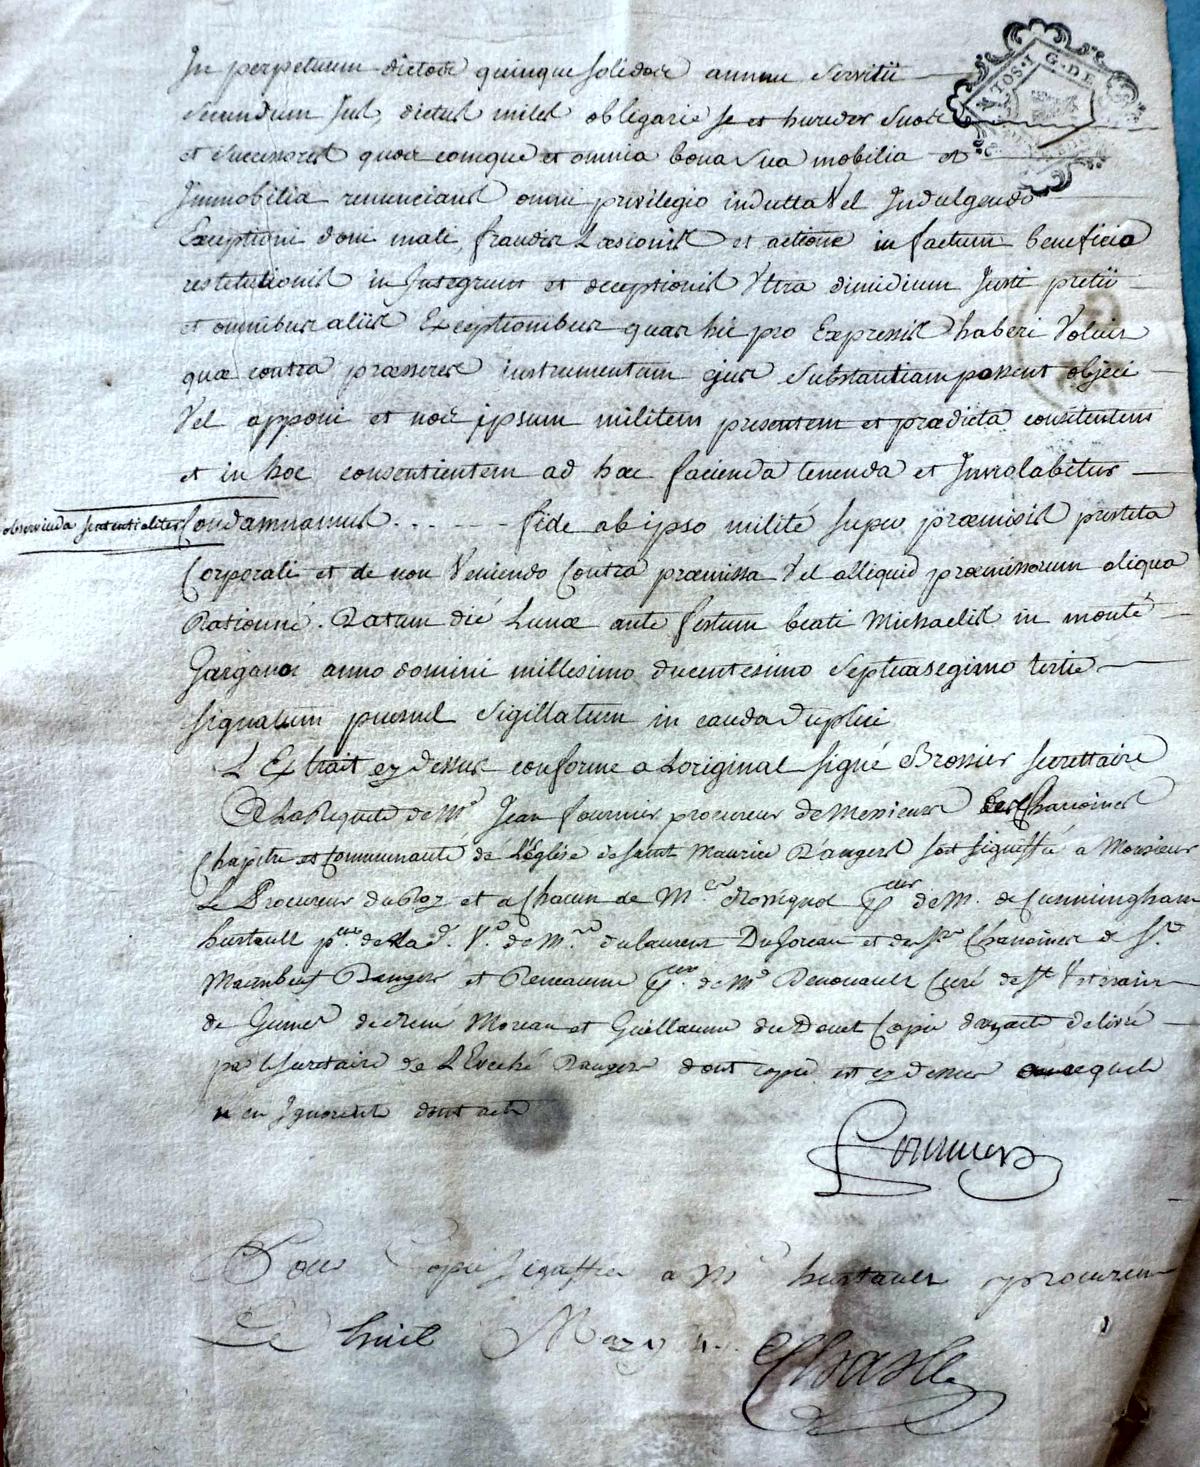 In perpetuum dictos quinque solidos annui servitii
secundum Jus, dictus miles obligavit se et haeredes suos
et successores quos cumque et omnia bona sua mobilia et
Immobilia renuncians omni privilegio indulto Vel Indulgendo
Exceptioni doni mali, fraudis Laesionis et actione in factum beneficio
restitutionis in Integrum et deceptionis Vltra dimidium Justi pretii
et omnibus aliis Exceptionibus quas hic pro Expressis haberi Voluit
quae contra praesens instrumentum ejus substantiam possent objici
Vel apponi et nos ipsum militem presentem et praedicta
et in hoc consentientem ad haec facienda tenenda et Inviolabiter
observanda sententialiter Condamnamus ... fide ab ipso milité super praemissis prestita
Corporali et de non Veniendo Contra praemissa Vel alliquid praemissorum aliqua
Rationné. Datum dié Lunae ante festum beati Michaelis in monté
Gargano anno domini millesimo ducentesimo septuasegimo tertio
signatum sigillatum in cauda duplici
L'Extrait cy dessus conforme a Loriginal signé Brossier secrettaire
A La Requete de Me Jean fournier procureur de Messieurs les Chanoines
Chapitre et Communauté de L'Eglise de saint Maurice D'angers soit signiffié a Monsieur
Le Procureur du Roy et a Chacun de Mes Rossignol pceur de M. de Cunningham
hurtault pceur de la d. Ve de M. du laurent Dusoreau et des Srs Chanoines de St
Mainbeuf Dangers et pceur de Me Renouault Curé de St
de Gennes de René Moreau et Guillaume du Douet Copie dun acte delivré
par le secretaire de L'Eveché Dangers dont copie est cy dessus
n'en Ignorent dont acte
Fournier
Pour Copie signiffiée a Me hurtault procureur
Le huit